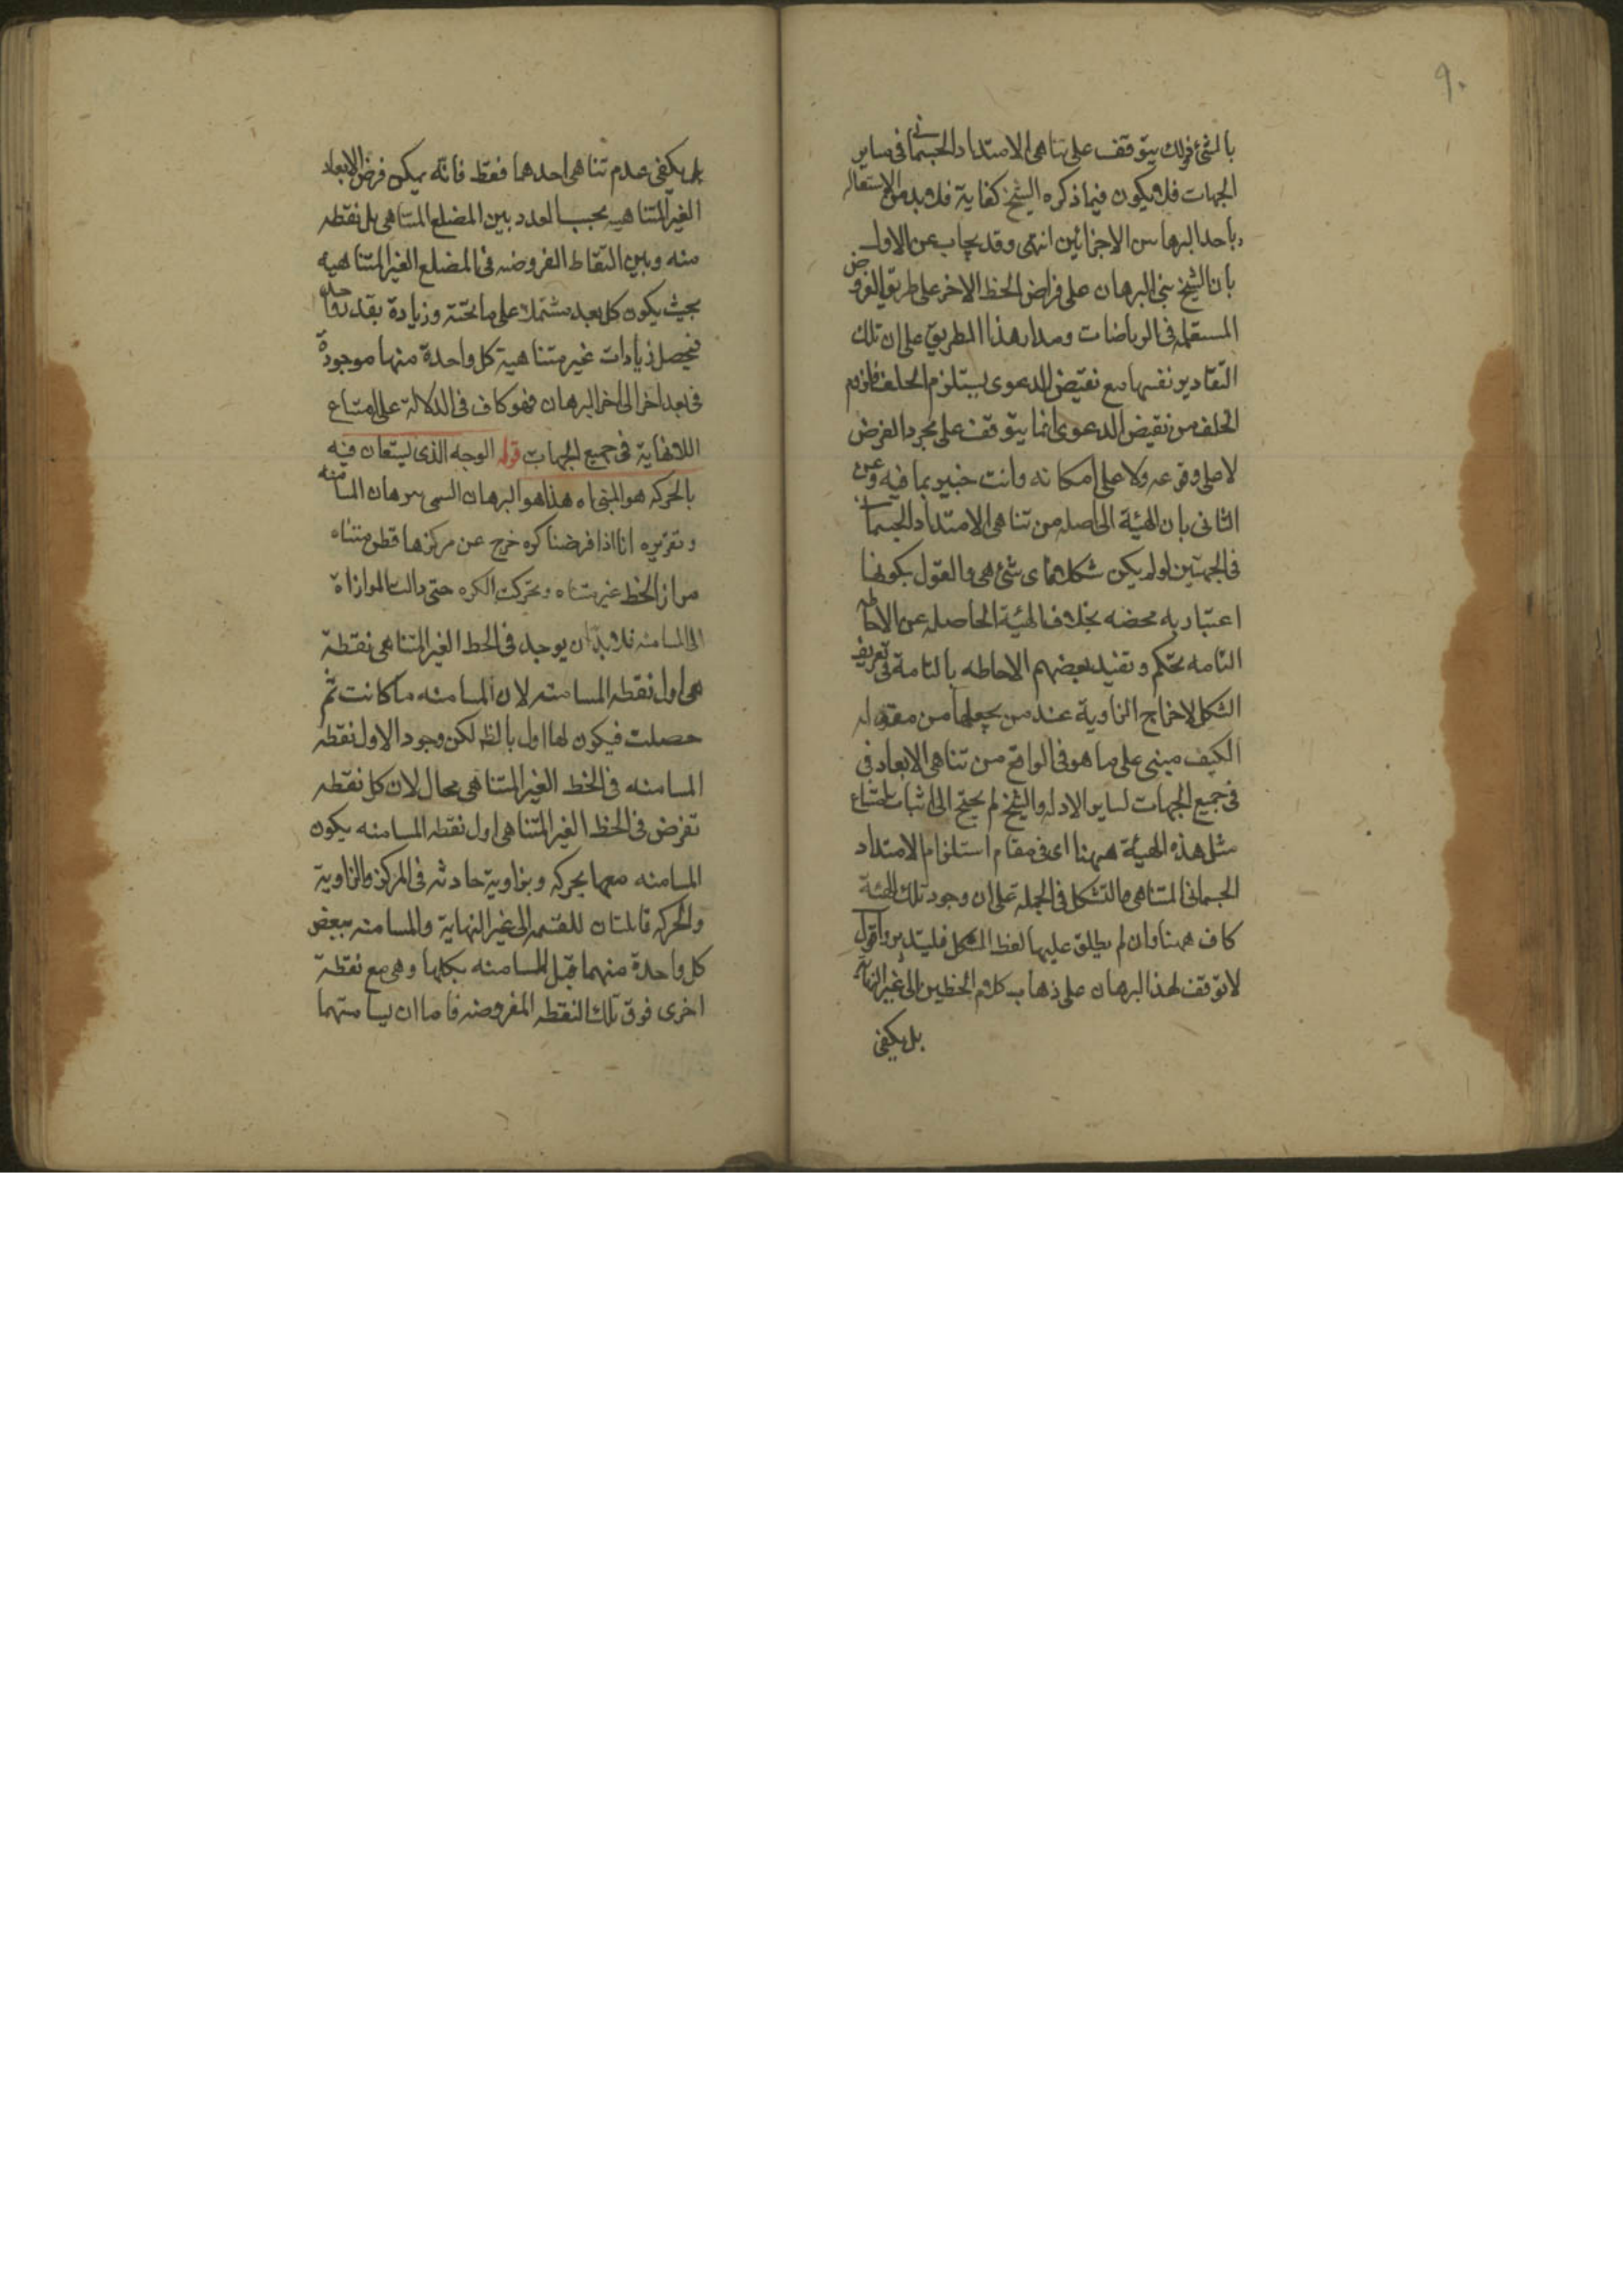 ٩٠
بالشئ وذلك يتوقف على تناهى الامتداد الجسمانى فى ساير
الجهات فلا يكون فيما ذكره الشيخ كفاية فلا بد من الاستعانه
باحد البرهانين الاخرائين انتهى وقد يجاب عن الاول
بان الشيخ بنى البرهان على فراض الخط الاخر على طريق الفروض
المستعمله فى الرياضات ومدار هذا الطريق على ان تلك
التقادير نفسها مع نقيض الدعوى يستلزم الخلف فلزوم
الخلف من نقيض الدعوى انما يتوقف على مجرد الفرض
لا على وقوعه ولا على امكانه وانت خبير بما فيه وعن
الثانى بان الهيئة الحاصله من تناهى الامتداد الجسمانى
فى الجهتين لو لم يكن شكلا فماى شئ هى والقول بكونها
اعتباريه محضه بخلاف الهيئة الحاصله عن الاحاطه
التامه تحكم وتقييد بعضهم الاحاطه بالتامة فى تعريف
الشكل لاخراج الزاوية عند من يجعلها من مقوله
الكيف مبنى على ما هو فى الواقع من تناهى الابعاد فى
فى جميع الجهات لساير الادله والشيخ لم يحتج الى اثبات امتناع
مثل هذه الهيئة ههنا اى فى مقام استلزام الامتداد
الجسمانى المتناهى والتشكل فى الجملة على ان وجود تلك الهيئة
كاف ههنا وان لم يطلق عليها لفظ الشكل فليتدبر واقول
لا توقف لهذا البرهان على ذهاب كلام الخطين الى غير النهاية
بل يكفى
بل يكفى عدم تناهى احدهما فقط فانه يمكن فرض الابعاد
الغير المتناهيه بحسب العدد بين المضلع المتناهى بل نقطه
منه وبين النقاط المفروضه فى المضلع الغير المتناهيه
بحيث يكون كل بعد مشتملا على ما تحته وزيادة بقدر واحد
فيحصل زيادات غير متناهية كل واحدة منها موجودة
فى بعد اخر الى اخر البرهان فهو كاف فى الدلالة على امتناع
اللانهاية فى جميع الجهات قوله الوجه الذى يستعان فيه
بالحركه هو المبنى اه هذا هو البرهان المسمى ببرهان المسامته
وتقريره انا اذا فرضنا كره خرج عن مركزها قطر متناه
مواز لخط غير متناه وتحركت الكره حتى زالت الموازاة
الى المسامته فلا بد ان يوجد فى الخط الغير المتناهى نقطة
هى اول نقطه المسامته لان المسامته ما كانت ثم
حصلت فيكون لها اول بالظ لكن وجود الاول نقطه
المسامته فى الخط الغير المتناهى محال لان كل نقطه
تفرض فى الخط الغير المتناهى اول نقطه المسامته يكون
المسامته معها بحركه وبزاوية حادثه فى المركز والزاوية
والحركه قابلتان للقسمه الى غير النهاية والمسامته ببعض
كل واحدة منهما قبل المسامته بكلها وهى مع نقطة
اخرى فوق تلك النقطه المفروضه فاما ان يسامتهما